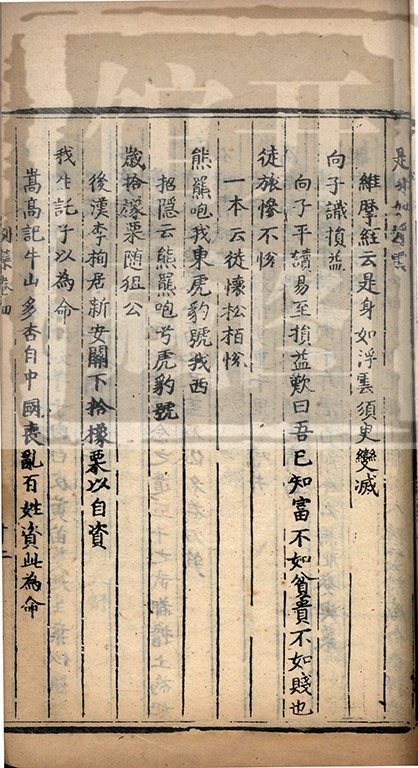 是身如浮雲
維摩経云是身如浮雲須臾變滅
向子識損益
向子平讀易至損益歎曰吾已知富不如貧貴不如賤也
徒旅慘不悅
一本云徒懷松柏悅
熊羆咆我東虎豹號我西
招隱云熊羆咆兮虎豹號
歳拾橡栗随狙公
後漢李恂居新安關下拾橡栗以自資
我生託子以為命
嵩高記牛山多杏自中國喪亂百姓資此為命